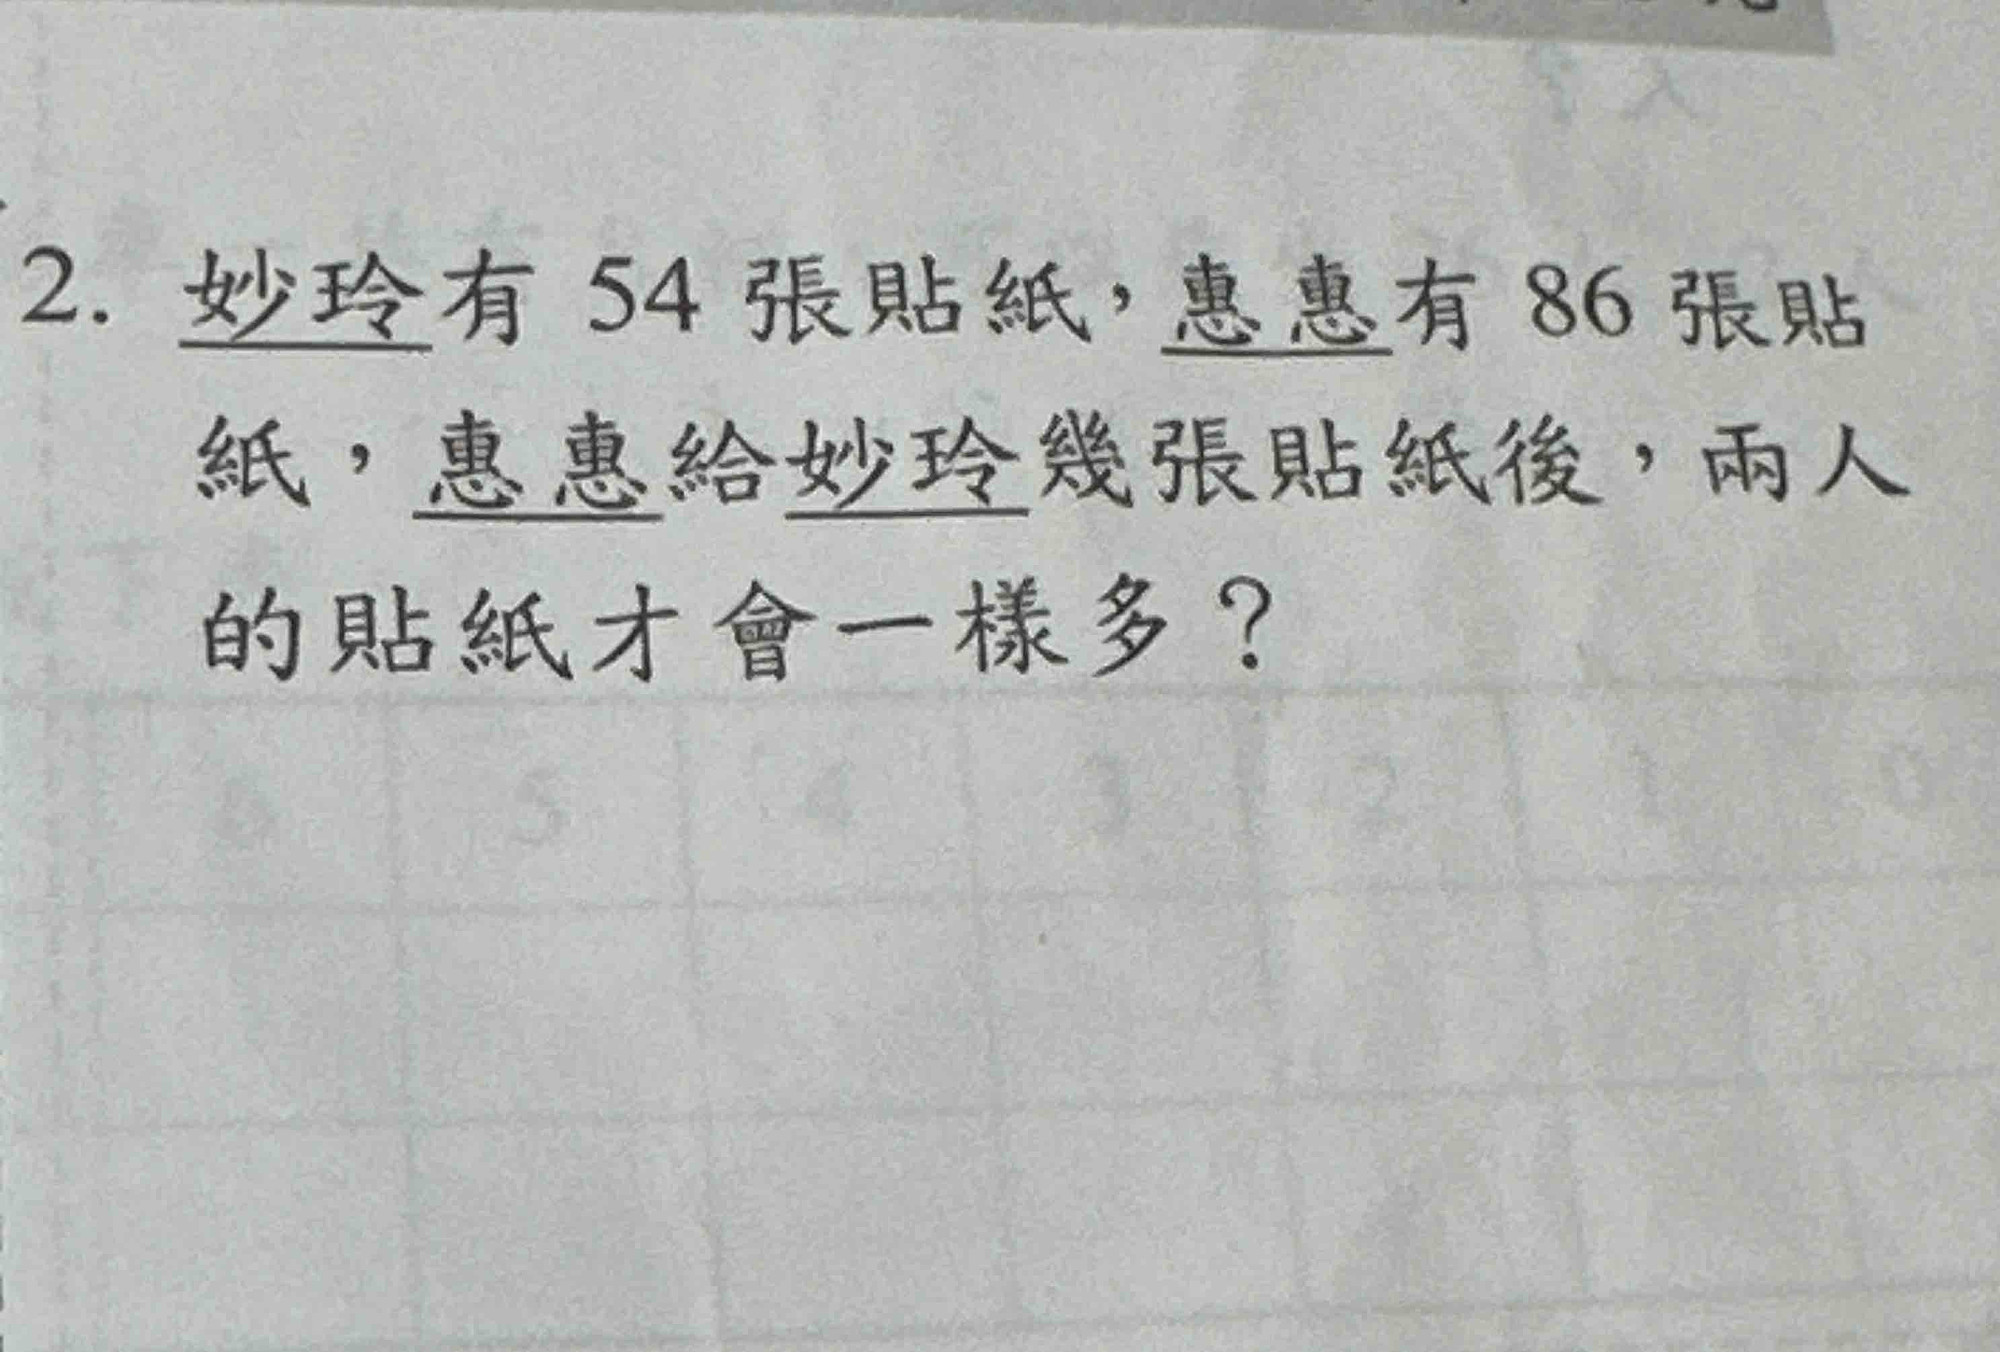 2. 妙玲有 54 張貼紙，惠惠有 86 張貼
紙，惠惠給妙玲幾張貼紙後，兩人
的貼紙才會一樣多？